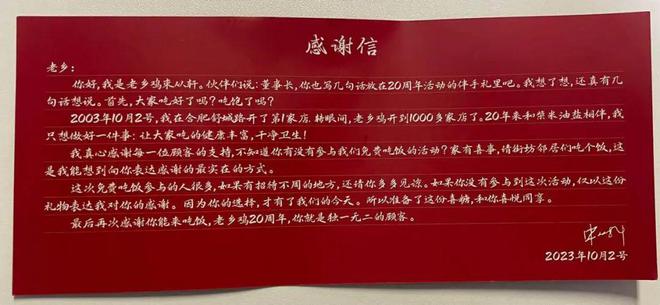 感谢信
老乡:
你好,我是老乡鸡束从轩。伙伴们说:董事长,你也写几句话放在20周年活动的伴手礼里吧。我想了想,还真有几
句话想说。首先,大家吃好了吗?吃饱了吗?
2003年10月2号,我在合肥舒城路开了第1家店,转眼间,老乡鸡开到1000多家店了。20年来和柴米油盐相伴,我
只想做好一件事:让大家吃的健康丰富,干净卫生!
我真心感谢每一位顾客的支持,不知道你有没有参与我们免费吃饭的活动?家有喜事,请街坊邻居们吃个饭,这
是我能想到向你表达感谢的最实在的方式。
这次免费吃饭参与的人很多,如果有招待不周的地方,还请你多多见谅。如果你没有参与到这次活动,仅以这份
礼物表达我对你的感谢。因为你的选择,才有了我们的今天。所以准备了这份喜糖,和你喜悦同享。
最后再次感谢你能来吃饭,老乡鸡20周年,你就是独一无二的顾客。
2023年10月2号